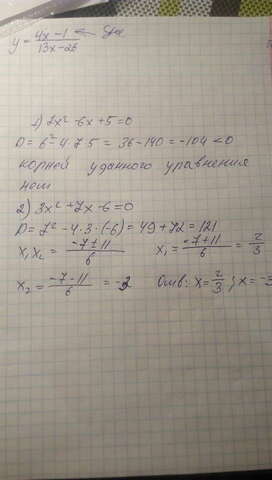 y = 4x-1 / 13x-26 ←
1) 7x² -6x +5 = 0
D = 6² -4·7·5 = 36 -140 = -104 < 0
корней у данного уравнения
нет
2) 3x² +7x -6 = 0
D = 7² - 4·3·(-6) = 49 + 72 = 121
x₁,x₂ = -7±11 / 6 x₁ = -7+11 / 6 = 2/3
x₂ = -7-11 / 6 = -3 Отв: x = 2/3 ; x = -3